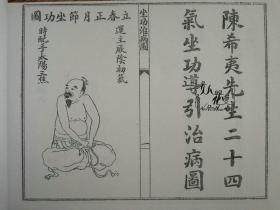 陳希夷先生二十四
氣坐功導引治病圖
坐功治病圖
立春正月節坐功圖
運主厥陰初氣
時配手太陽三焦